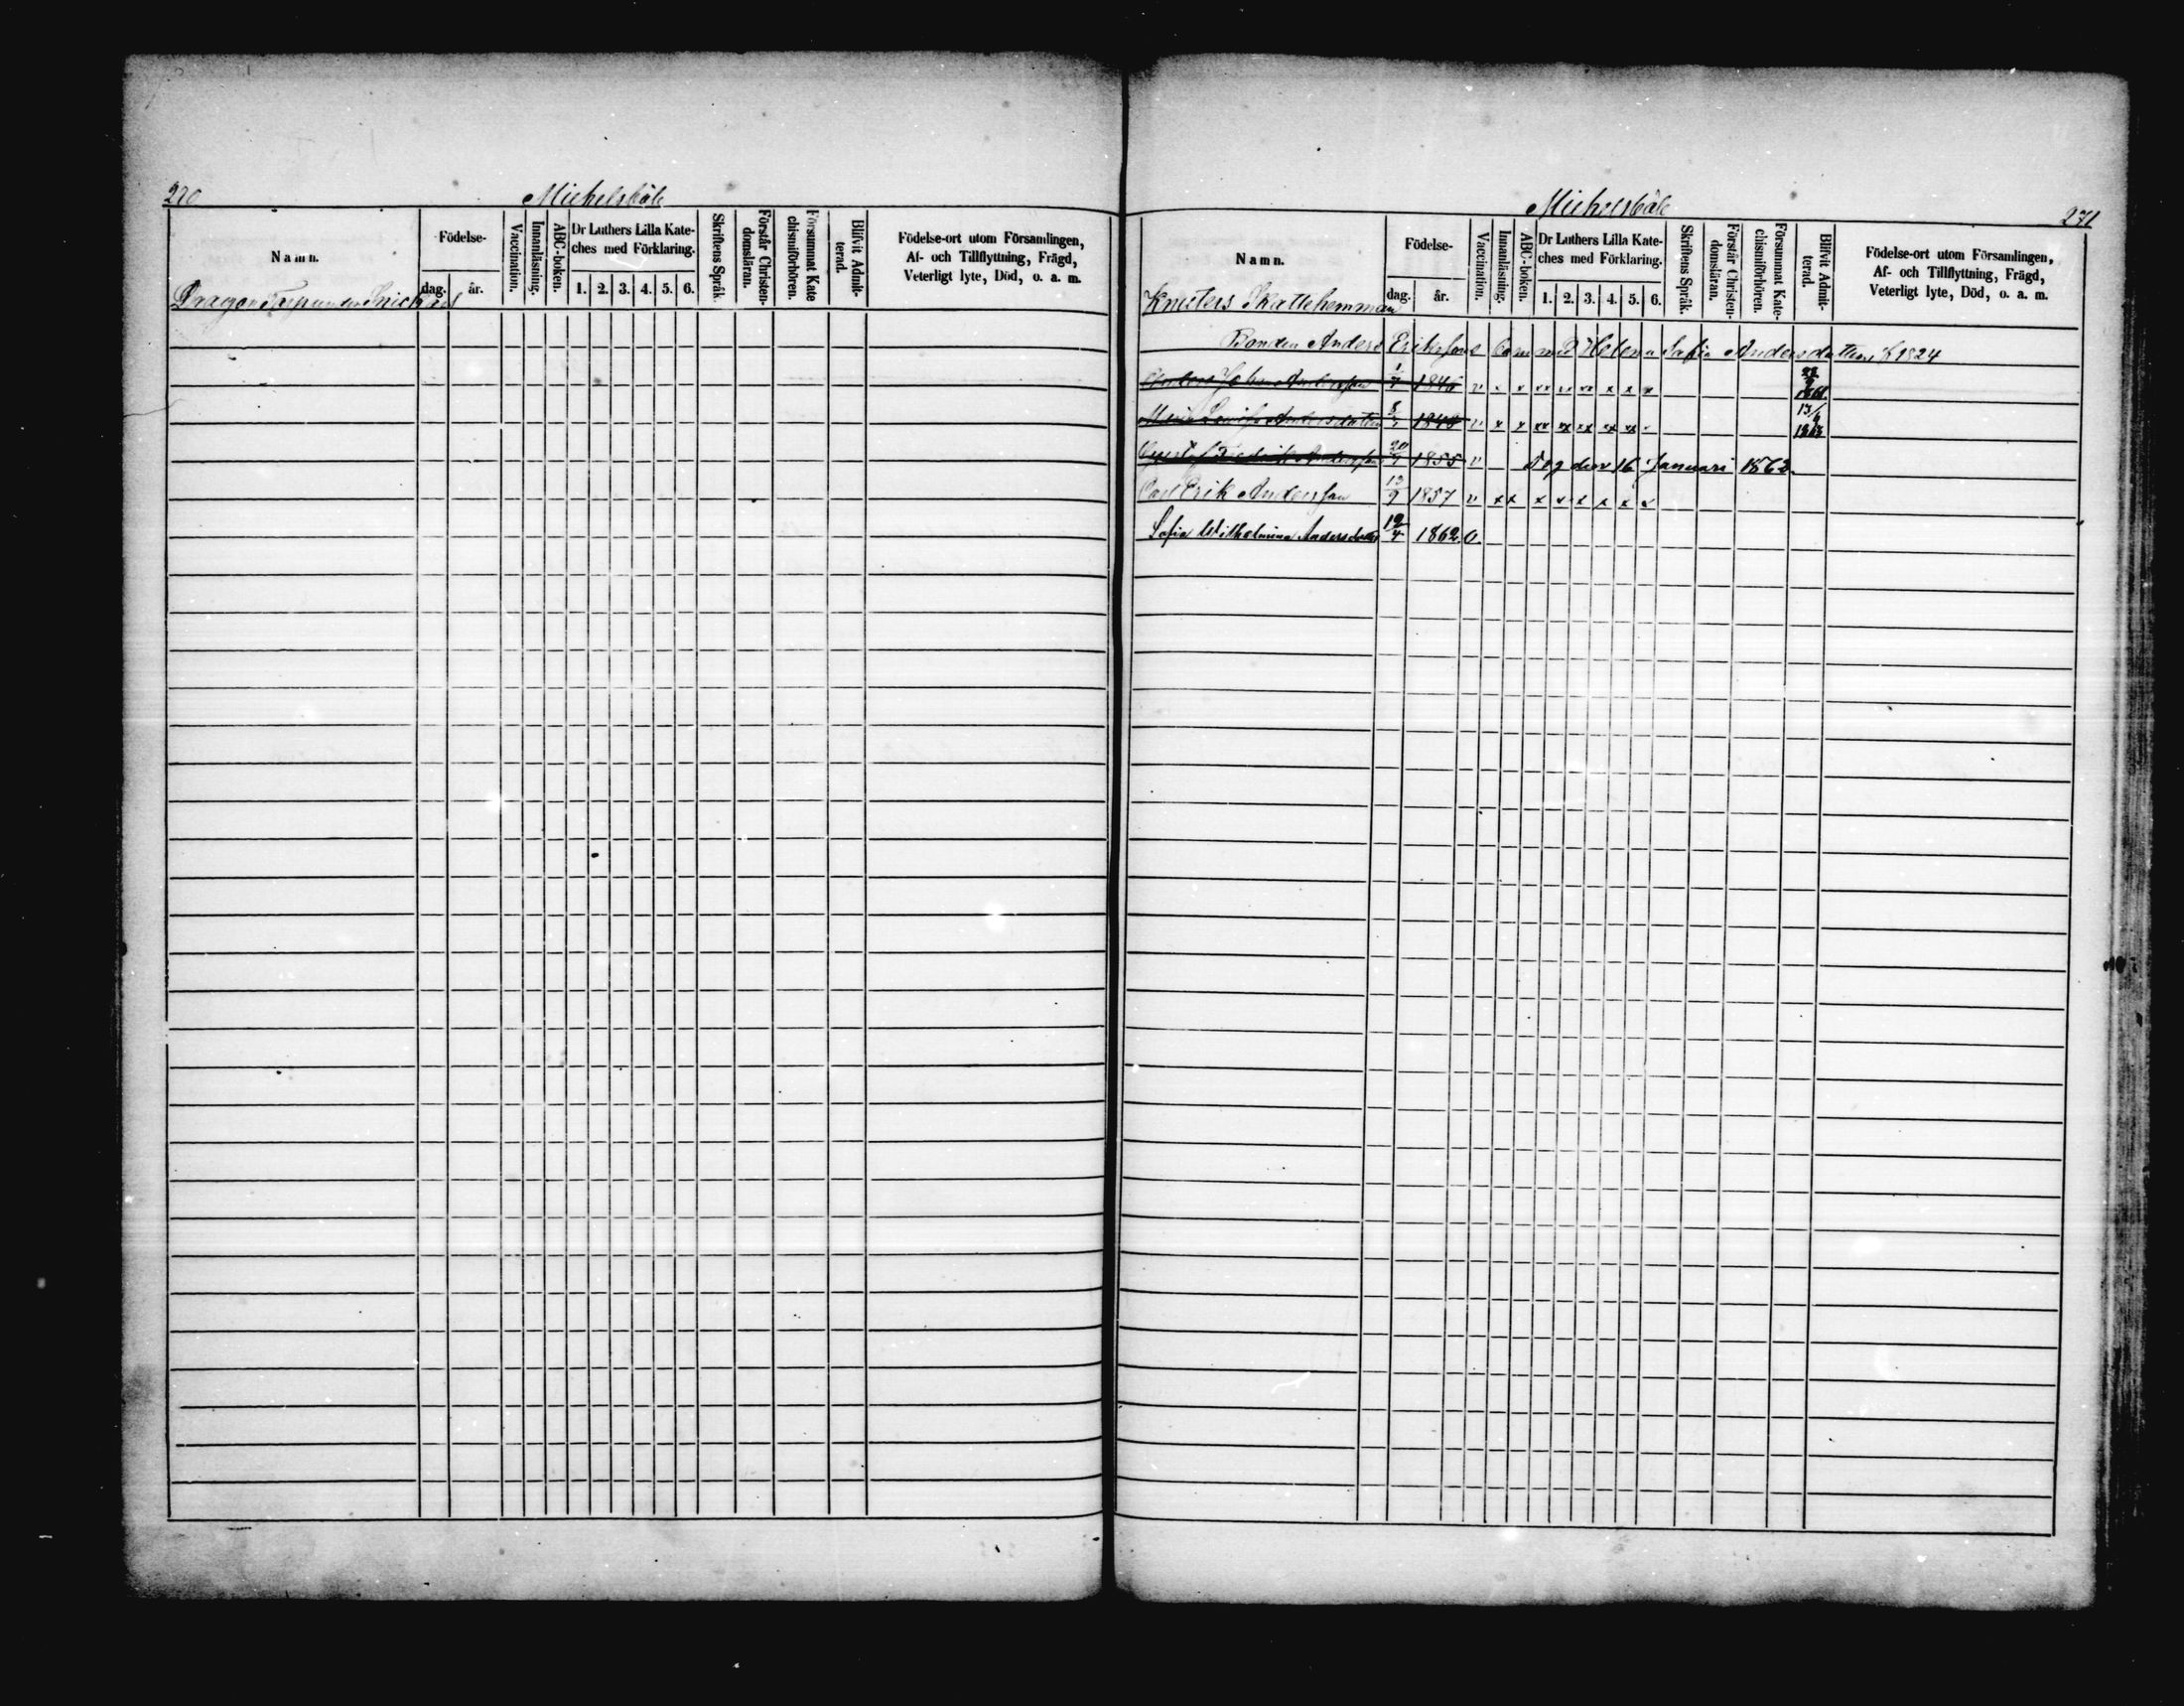 270
Michelsböle
Namn.
Födelse-
dag.
år.
Vaccination.
Innanläsning.
ABC-boken.
Dr Luthers Lilla Kate-
ches med Förklaring.
1. 2. 3. 4. 5. 6.
Skriftens Språk.
Förstår Christen-
domsläran.
Försummat Kate
chismiförhören.
Blifvit Admit-
terad.
Födelse-ort utom Församlingen,
Af- och Tillflyttning, Frägd,
Veterligt lyte, Död, o. a. m.
Dragon Torp under
Michelsböle
271
Namn.
Födelse-
dag.
år.
Vaccination.
Innanläsning.
ABC-boken.
Dr Luthers Lilla Kate-
ches med Förklaring.
1. 2. 3. 4. 5. 6.
Skriftens Språk.
Förstår Christen-
domsläran.
Försummat Kate-
chismiförhören.
Blifvit Admit-
terad.
Födelse-ort utom Församlingen,
Af- och Tillflyttning, Frägd,
Veterligt lyte, Död, o. a. m.
Knuters Skattehemman
Bonden Anders Erikssons barn med Helena Sofia Andersdotter f 1824
Anders Johan Andersson 1/7 v x x xx xx x x x
Maria Lovisa Andersdotter v x x xx xx xx xx xx 13/6 1863
Gustaf Fredrik Andersson 1855 v Dog den 16 Januari 1862
Carl Erik Andersson 13/9 1857 v xx x x x x x x
Sofia Wilhelmina Andersdotter 12/4 1862 v